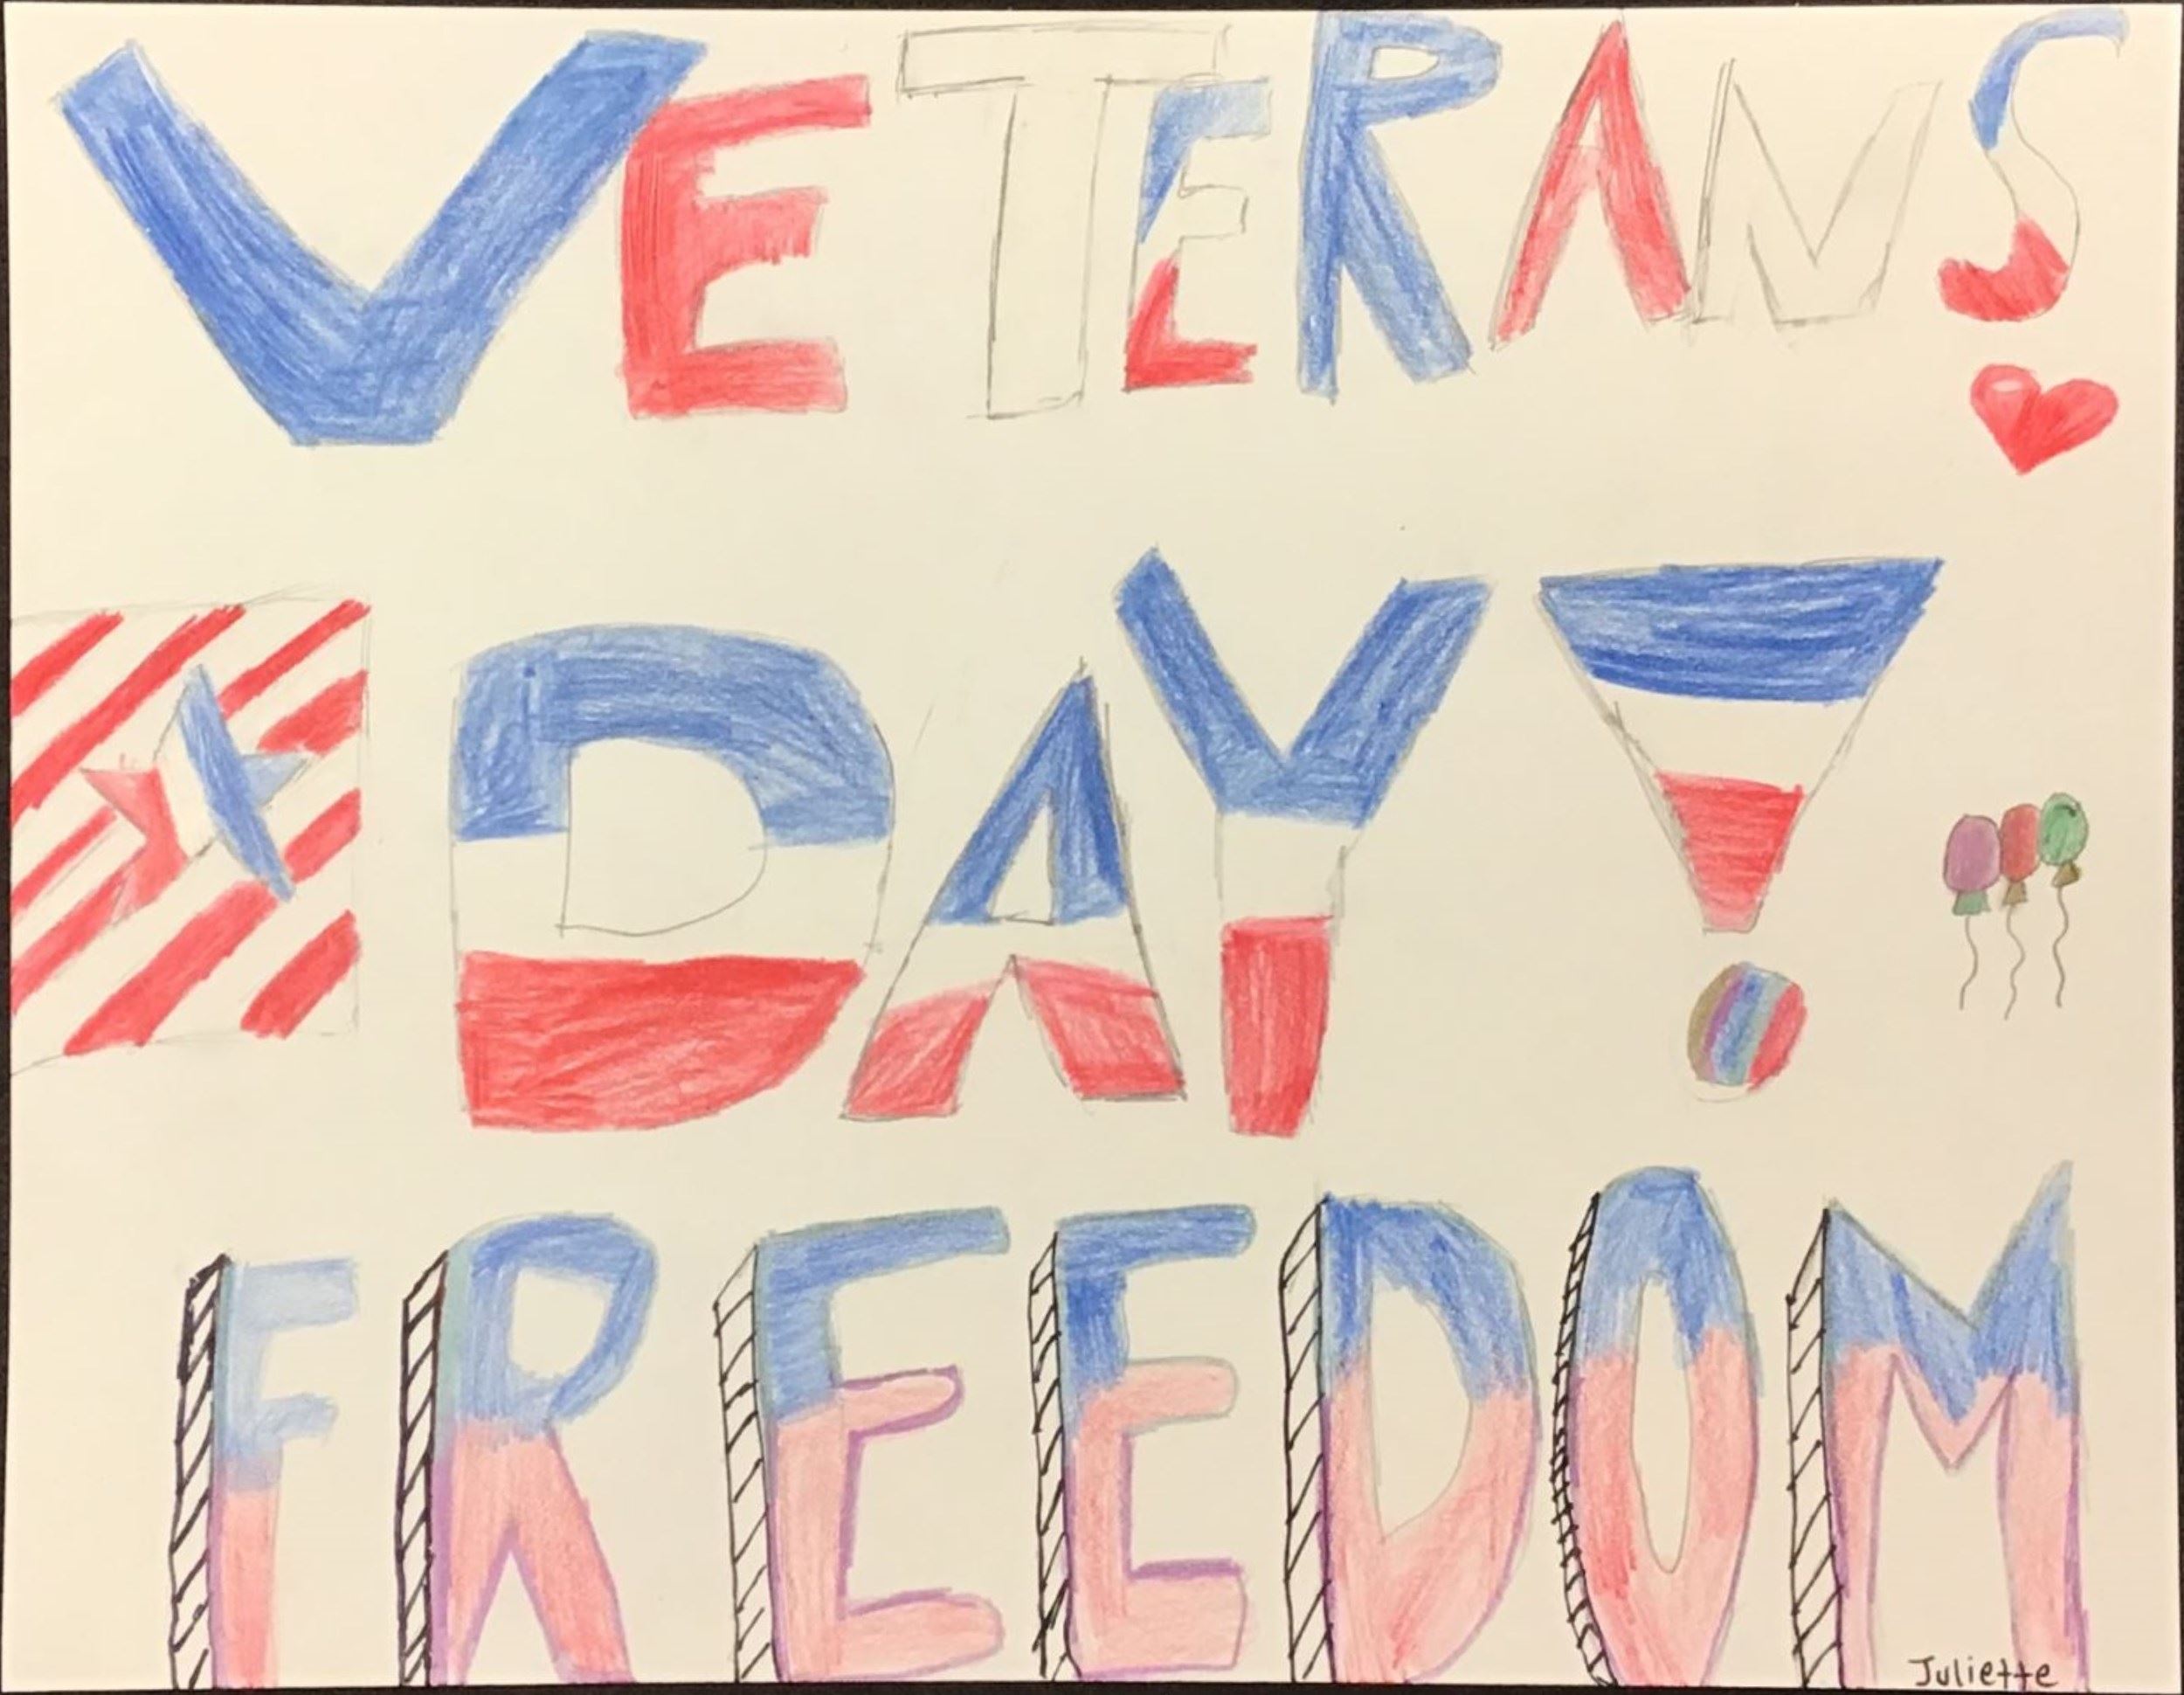 VETERANS
DAY!
FREEDOM
Juliette